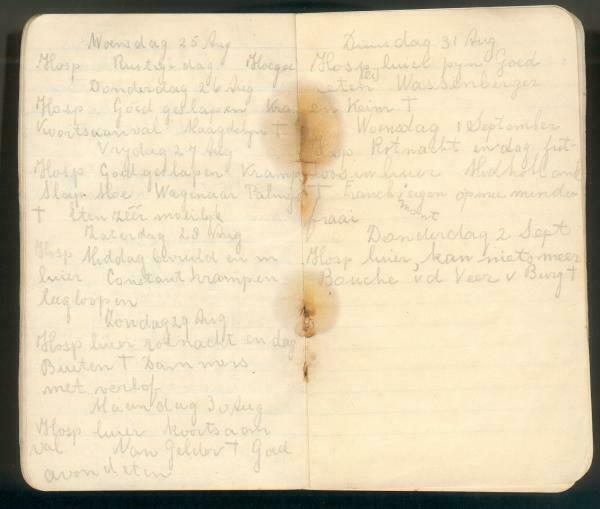 Woensdag 25 Aug
Hosp Rustige dag
Donderdag 26 Aug
Hosp Goed geslapen
Koortsaanval Maagdelyn †
Vrydag 27 Aug
Hosp Goed geslapen Kramp
Slap. Moe Wagenaar
† Eten zéér moeilijk
Zaterdag 28 Aug
Hosp Middag bevuild en in
luier Constant krampen
leegloopen
Zondag 29 Aug
Hosp luier rotnacht en dag
Buiten † Dammers
met verlof
Maandag 30 Aug
Hosp luier koortsaan
val Van Geldor † Goed
avondeten
Dinsdag 31 Aug
Hosp luier pyn Goed
eten Wassenberger
en Keim †
Woensdag 1 September
Hosp Rotnacht en dag fut-
loos in luier
† Franch eigen opname minder
fraai
Donderdag 2 Sept
Hosp luier, kan niet meer
Bouche v d Veer v Burg †